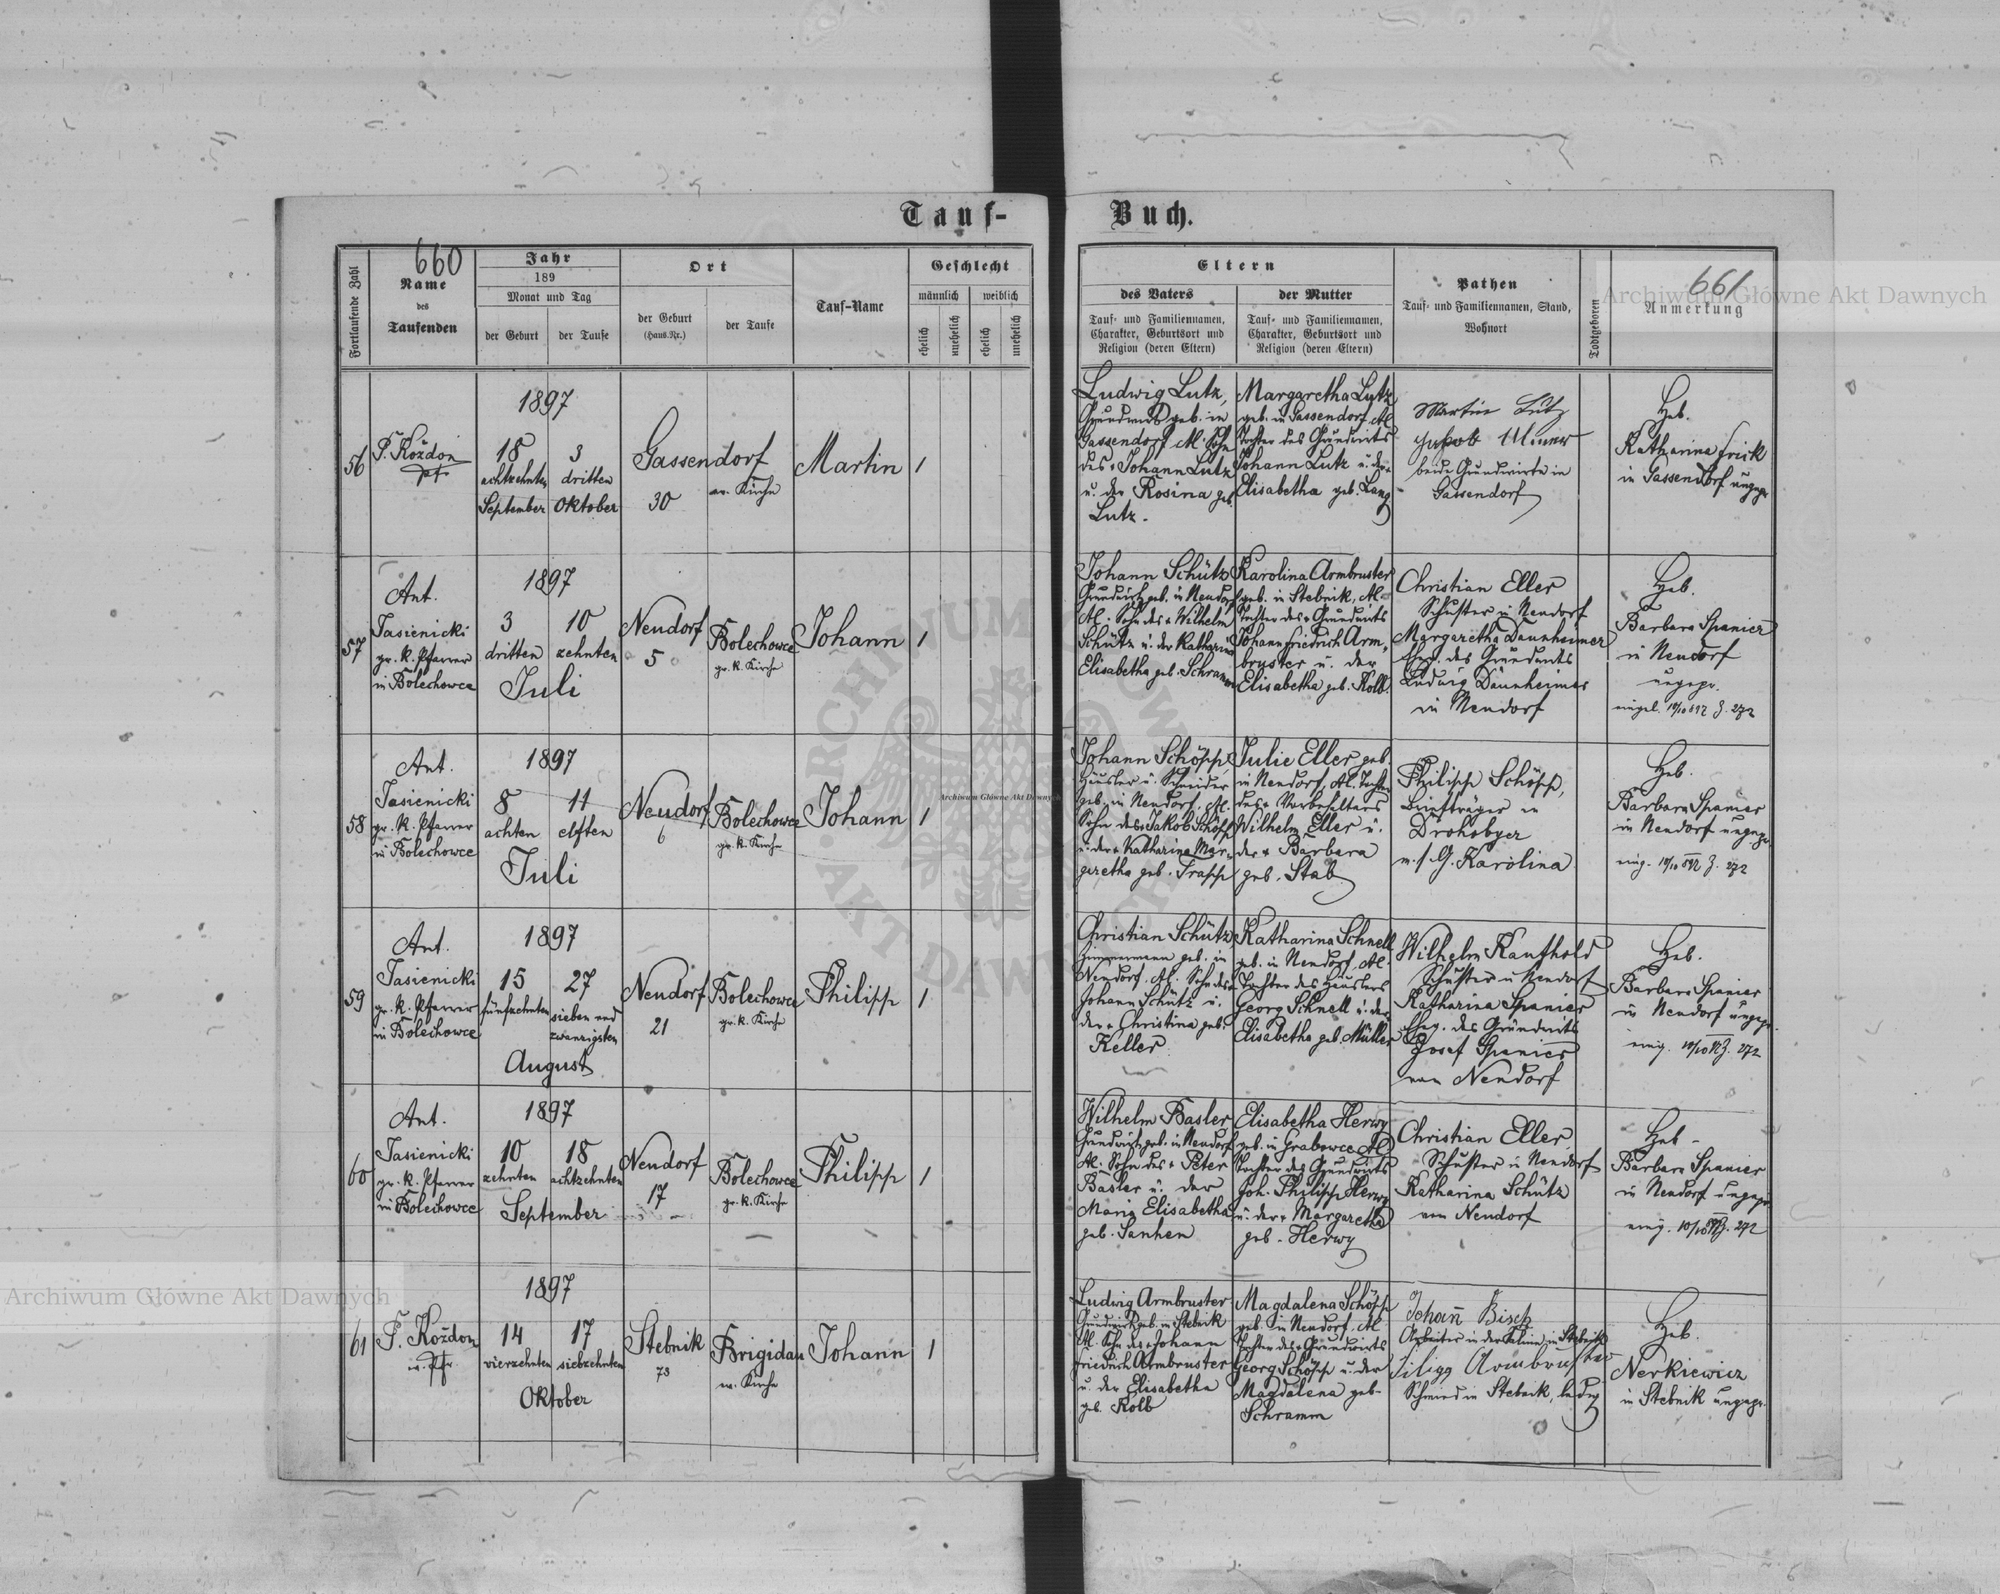 Tauf-
Buch.
660
661
Fortlaufende Zahl
Name
des
Taufenden
Jahr
189
Monat und Tag
der Geburt
der Taufe
Ort
der Geburt
(Haus.Nr.)
der Taufe
Tauf-Name
Geschlecht
männlich
weiblich
ehelich
unehelich
ehelich
unehelich
Eltern
des Vaters
Tauf- und Familiennamen,
Charakter, Geburtsort und
Religion (deren Eltern)
der Mutter
Tauf- und Familiennamen,
Charakter, Geburtsort und
Religion (deren Eltern)
Pathen
Tauf- und Familiennamen, Stand,
Wohnort
Todtgeboren
Anmerkung
56
Kozdon
Pfr
1897
18
achtzehnten
September
3
dritten
Oktober
Gassendorf
30
ev. Kirche
Martin
1
Ludwig Lutz,
Grundwirt geb. in
Gassendorf, AC. Sohn
des + Johann Lutz
u. der Rosina geb.
Lutz.
Margaretha Lutz
geb. in Gassendorf, AC.
Tochter des Grundwirts
Johann Lutz u. der
Elisabetha geb. Lang
Martin Lutz
Jakob
beide Grundwirte in
Gassendorf
Heb.
Katharina Frick
in Gassendorf ungepr.
57
Ant.
Jasienicki
gr. k. Pfarrer
in Bolechowce
1897
3
dritten
10
zehnten
Juli
Neudorf
5
Bolechowce
gr. k. Kirche
Johann
1
Johann Schütz
Grundwirt geb. in Neudorf
AC. Sohn des + Wilhelm
Schütz u. der Katharina
Elisabetha geb. Schramm
Karolina Armbruster
geb. in Stebnik, AC.
Tochter des + Grundwirts
Johann Friedrich Arm-
bruster u. der
Elisabetha geb. Kolb.
Christian Eller
Schuster in Neudorf
Margaretha Daunheimer
Eheg. des Grundwirts
Ludwig Daunheimer
in Neudorf
Heb.
Barbara Spanier
in Neudorf
ungepr.
eingel. 10/10 897 Z. 272
58
Ant.
Jasienicki
gr. k. Pfarrer
in Bolechowce
1897
8
achten
11
elften
Juli
Neudorf
6
Bolechowce
gr. k. Kirche
Johann
1
Johann Schöpp
Häusler u. Schneider
geb. in Neudorf. AC.
Sohn des + Jakob Schöpp
u. der + Katharina Mar-
garetha geb. Trapp
Julie Eller geb.
in Neudorf, AC. Tochter
des + Vorbehalters
Wilhelm Eller u.
der + Barbara
geb. Stab
Philipp Schöpp,
Briefträger in
Drohobycz
m. s. G. Karolina
Heb.
Barbara Spanier
in Neudorf ungepr.
eing. 10/10 897 Z. 272
59
Ant.
Jasienicki
gr. k. Pfarrer
in Bolechowce
1897
15
fünfzehnten
27
sieben und
zwanzigsten
August
Neudorf
21
Bolechowce
gr. k. Kirche
Philipp
1
Christian Schütz
Zimmermann geb. in
Neudorf, AC. Sohn des +
Johann Schütz u.
der + Christina geb.
Keller
Katharina Schnell
geb. in Neudorf, AC.
Tochter des Häuslers
Georg Schnell u. der
Elisabetha geb. Müller
Wilhelm Kaufhold
Schuster in Neudorf
Katharina Spanier
Eheg. des Grundwirts
Josef Spanier
von Neudorf
Heb.
Barbara Spanier
in Neudorf ungepr.
eing. 10/10 97 Z. 272
60
Ant.
Jasienicki
gr. k. Pfarrer
in Bolechowce
1897
10
zehnten
18
achtzehnten
September
Neudorf
17
Bolechowce
gr. k. Kirche
Philipp
1
Wilhelm Basler
Grundwirt geb. in Neudorf
AC. Sohn des + Peter
Basler u. der
Maria Elisabetha
geb. Sanhen
Elisabetha Herwy
geb. in Grabowce AC
Tochter des Grundwirts
Joh. Philipp Herwy
u. der + Margaretha
geb. Herwy
Christian Eller
Schuster in Neudorf
Katharina Schütz
von Neudorf
Heb.
Barbara Spanier
in Neudorf ungepr.
eing. 10/10 897 Z. 272
61
F. Kozdon
ev. Pfr.
1897
14
vierzehnten
17
siebzehnten
Oktober
Stebnik
73
Brigidau
ev. Kirche
Johann
1
Ludwig Armbruster
Grundwirt geb. in Stebnik
AC. Sohn des + Johann
Friedrich Armbruster
u. der Elisabetha
geb. Kolb
Magdalena Schöpp
geb. in Neudorf, AC.
Tochter des + Grundwirts
Georg Schöpp u. der
Magdalena geb.
Schramm
Johann Bisch
Arbeiter in der Saline in Stebnik
Filipp Armbruster
Schmied in Stebnik, ledig
Heb.
Nerkiewicz
in Stebnik ungepr.
Archiwum Główne Akt Dawnych
Archiwum Główne Akt Dawnych
Archiwum Główne Akt Dawnych